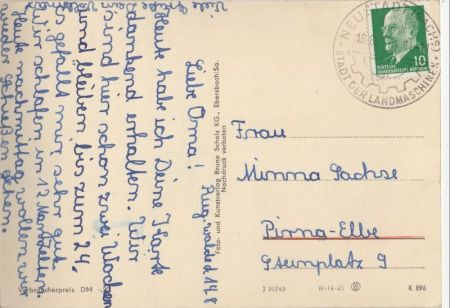 Liebe Oma!
Heute habe ich Deine Karte
dankend erhalten. Wir
sind hier schon zwei Wochen
und bleiben bis zum 24.
Es gefällt mir sehr gut.
Wir schlafen in
Heute nachmittag wollen wir
gehen.
Viele Grüße
Foto- und Kunstverlag Bruno Scholz KG., Ebersbach/Sa.
Nachdruck verboten
STADT DER LANDMASCHINEN
10
DEUTSCHE
DEMOKRATISCHE
Frau
Minna Sachse
Pirna-Elbe
9
Verbraucherpreis DM
J 20/63
IV-14-45
K 896